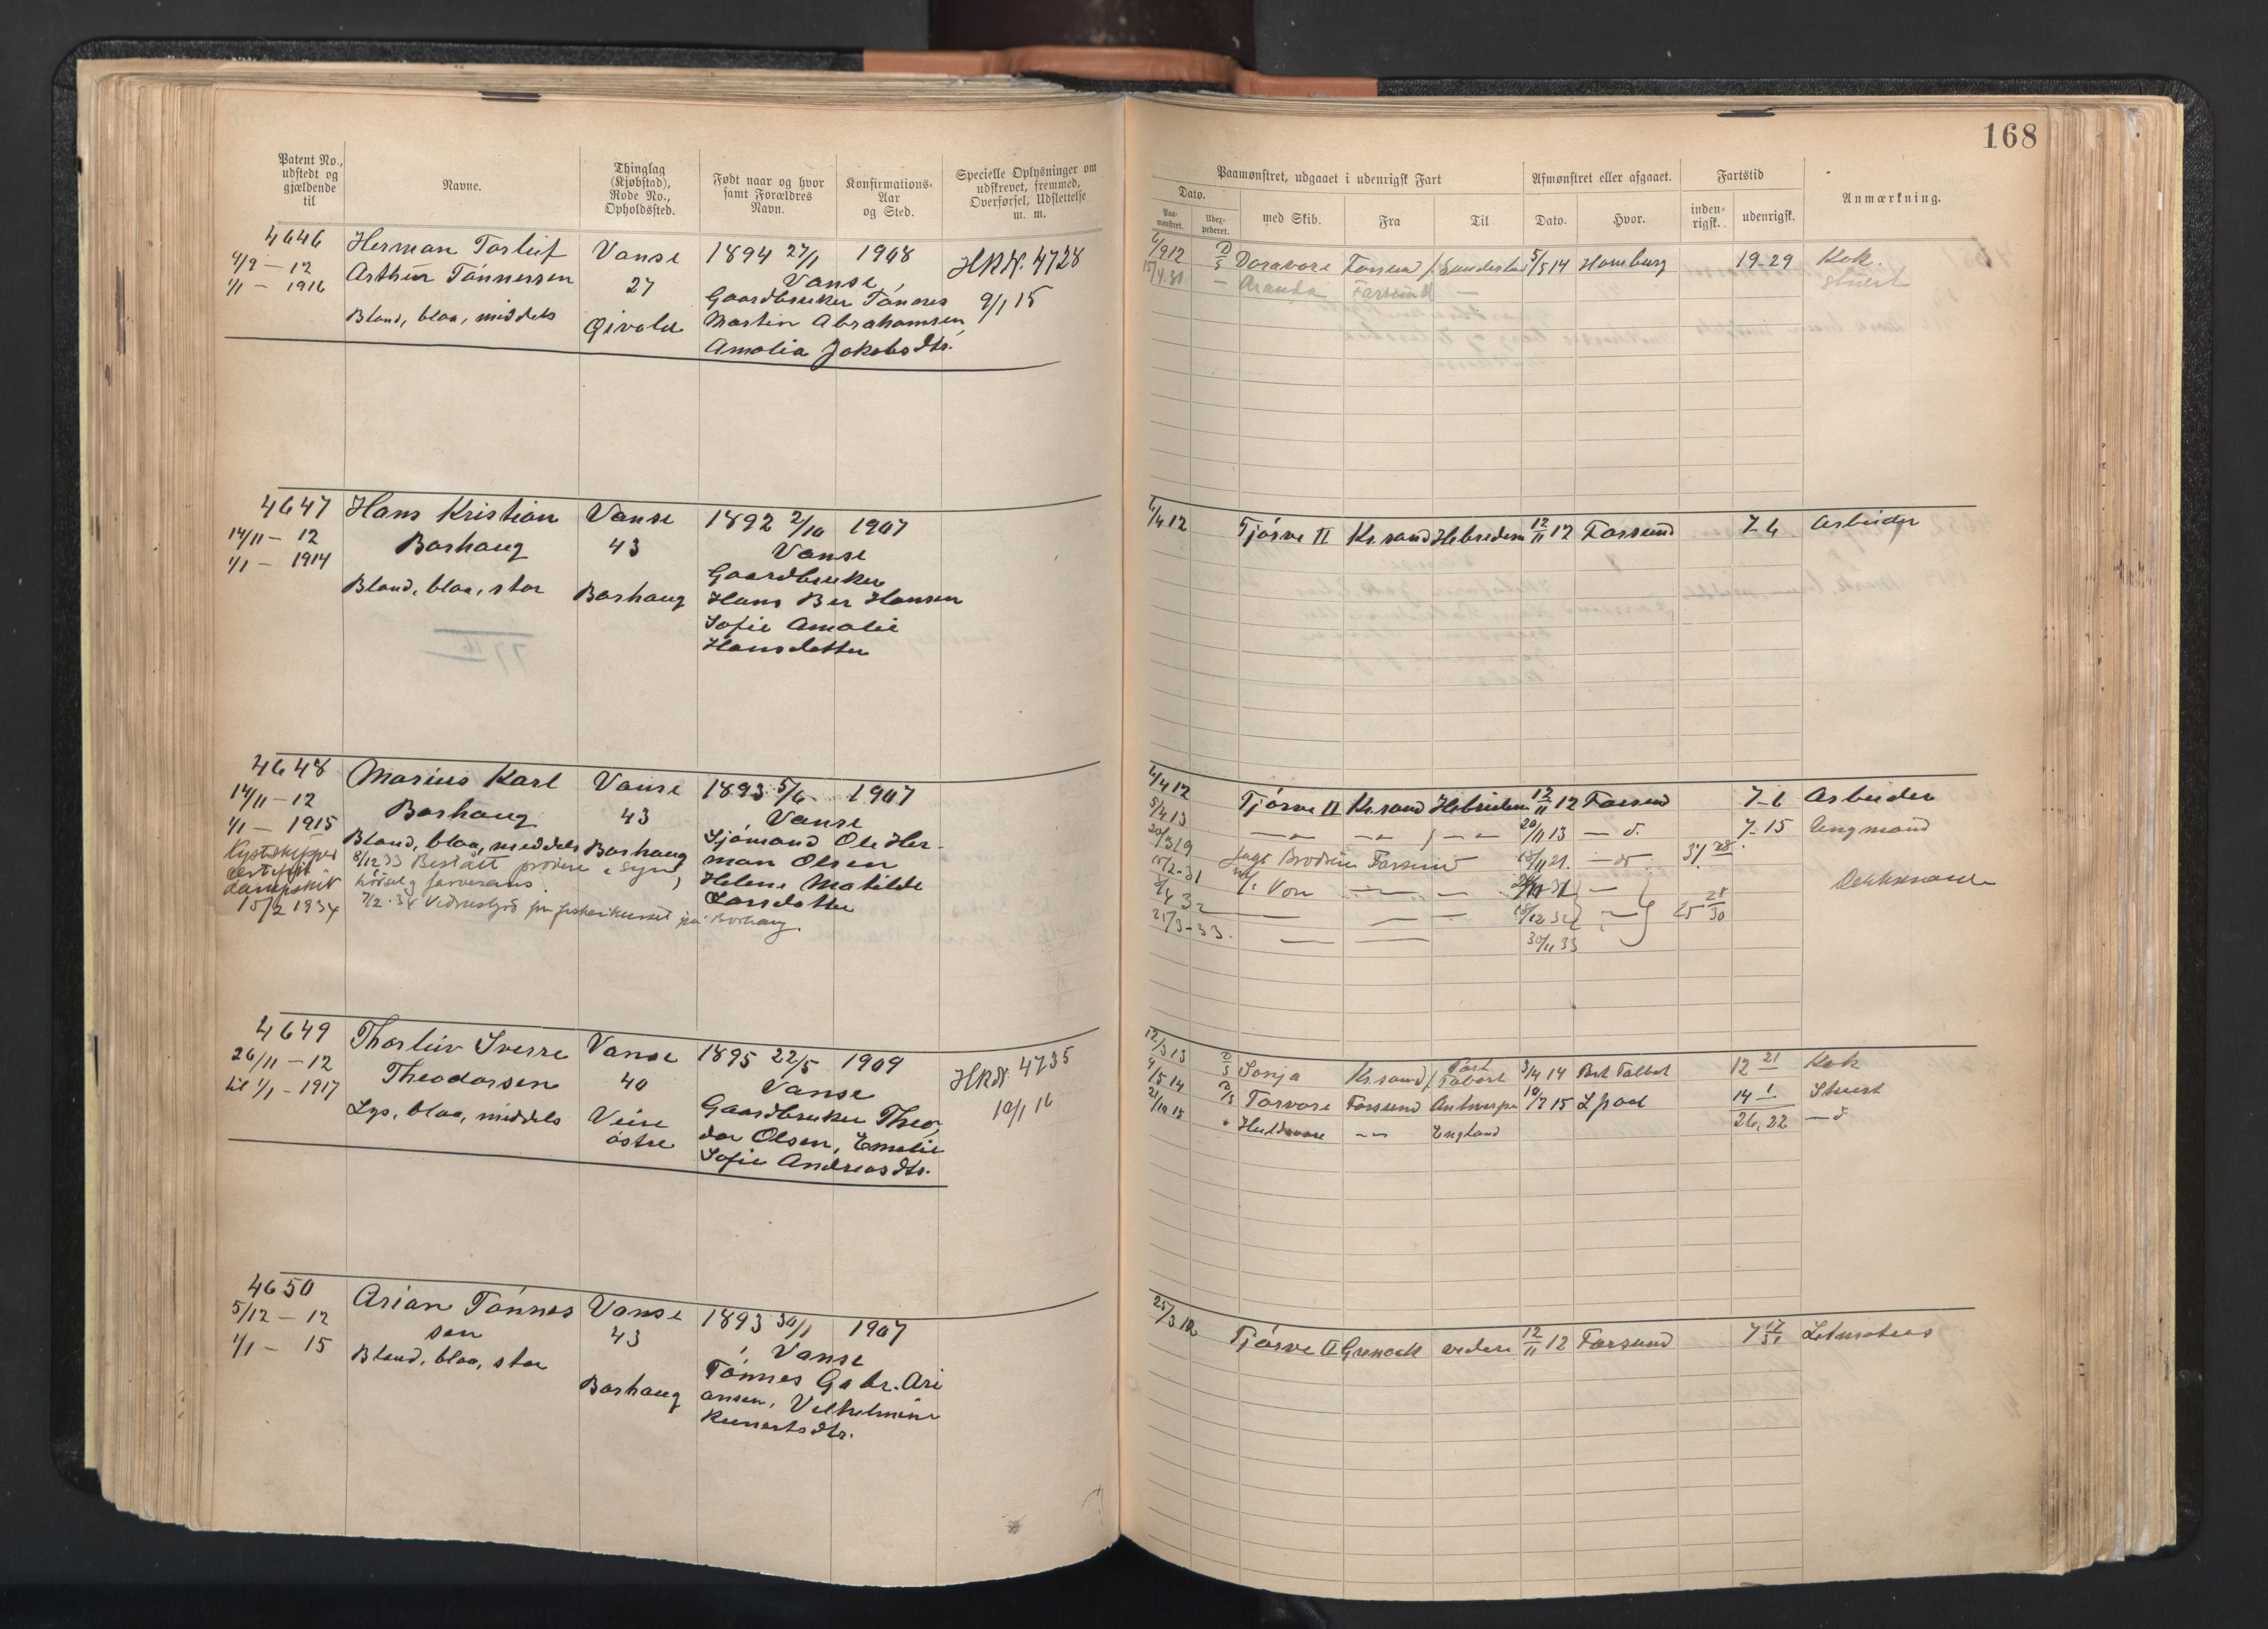 168
Patent No.,
udstedt og
gjældende
til
Navne.
Thinglag
(Kjøbstad),
Rode No.,
Opholdssted.
Født naar og hvor
samt Forældres
Navn.
Konfirmations-
Aar
og Sted.
Specielle Oplysninger om
udskrevet, fremmed,
Overførsel, Udslettelse
m. m.
Paamønstret, udgaaet i udenrigsk Fart
Afmønstret eller afgaaet.
Fartstid
Anmærkning.
Dato.
Paa-
mønstret.
med Skib.
Fra
Til
Dato.
Hvor.
inden-
rigsk.
udenrigsk.
4646 Herman Torleif Vanse 1894 27/1 1908 HRN. 4728
4/9 – 12 Arthur Tønnessen 27 Vanse, 9/1 15
1/1 – 1916 Gaardbruker Tønnes
Bland, blaa, middels Martin Abrahamsen,
Amalia Jakobsdtr.
6/9 12 D/S Doravore Farsund / Sunderland 5/5 14 Hamburg 19-29 Kok.
15/4.31 — Aranda Farsund — stuert
4647 Hans Kristian Vanse 1892 2/10 1907
14/11 – 12 Borhaug 43 Vanse
1/1 – 1914 Gaardbruker
Bland, blaa, stor Borhaug Hans Ber Hansen
Sofie Amalie
Hansdatter
6/4 12 Tjørve II Kr.sand Hebriderne 12/11 12 Farsund 7-6 Arbeider
4648 Marius Karl Vanse 1893 5/6 1907
14/11 – 12 Borhaug 43 Vanse
1/1 – 1915 Bland, blaa, middels Borhaug Sjømand Ole Her-
man Olsen
Helene Matilde
Larsdatter
Kystskipper
certifikat
Dampskib
15/2 1934
8/12 33 Bestått prøvene i syn,
hørsel og farvesans.
7/2-34 Vidnesbyrd fra fiskerikurset på Borhaug.
6/4 12 Tjørve II Kr.sand Hebriderne 12/11 12 Farsund 7-6 Arbeider
5/4 13 — — — 20/11 13 — d. 7-15 Ungmand
20/3 19 Jagt Brodrene Farsund 15/11 21. — do
15/2-31 Von — — —
3/4 32 — — — 15/12 32 —
21/3-33. — — 30/11 33
4649 Thorleiv Sverre Vanse 1895 22/5 1909 HRN 4735
26/11 – 12 Theodorsen 40 Vanse 10/1 16
til 1/1 – 1917 Gaardbruker Theo
Lys, blaa, middels Veire dor Olsen, Emelie
østre Sofie Andreasdtr.
12/3 13 D/S Sonja Kr.sand / Port Talbot 3/4 14 Port Talbot 12 21 Kok
4/5 14 D/S Torvore Farsund Antwerpen 10/7 15 Lpool 14 1 Stuert
21/10 15 " Huldavore — England 26, 22 — d
4650 Arian Tønnes Vanse 1893 30/1 1907
5/12 – 12 sen 43 Vanse
1/1 – 15 Bland, blaa, stor Tønnes Gabr. Ari
Borhaug ansen, Vilhelmine
Reinertsdtr.
25/3 12 Tjørve II Grenock videre 12/11 12 Farsund 7 17/31 Letmatros